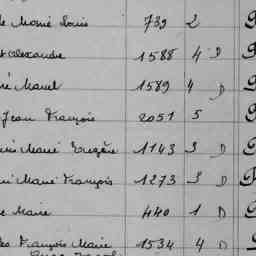 de Marie Louis 739 2
t Alexandre 1588 4 D
né Marcel 1589 4 D
Jean François 2051 5
uis Marié Eugène 1143 3 D
ni Marié François 1273 3 D
e Marie 440 1 D
les François Marie 1534 4 D